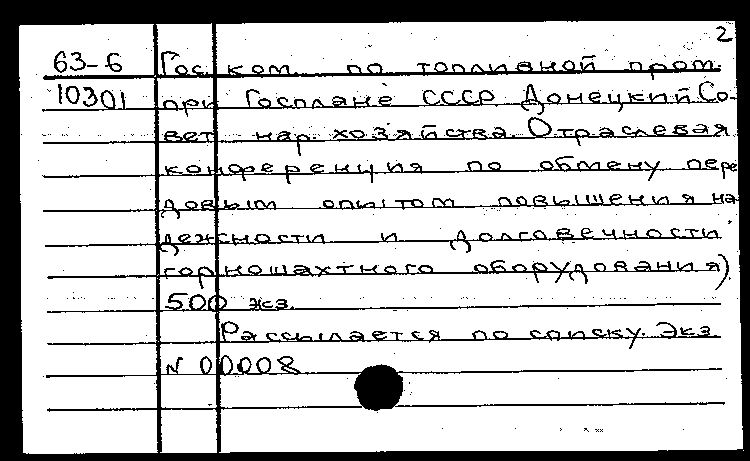 2
63-6 Гос. ком. по топливной пром.
10301 при Госплане СССР Донецкий Со-
вет нар. хозяйства. Отраслевая
конференция по обмену пере
довым опытом повышения на
дежности и долговечности
горношахтного оборудования).
500 экз.
Рассылается по списку. Экз
N 00008